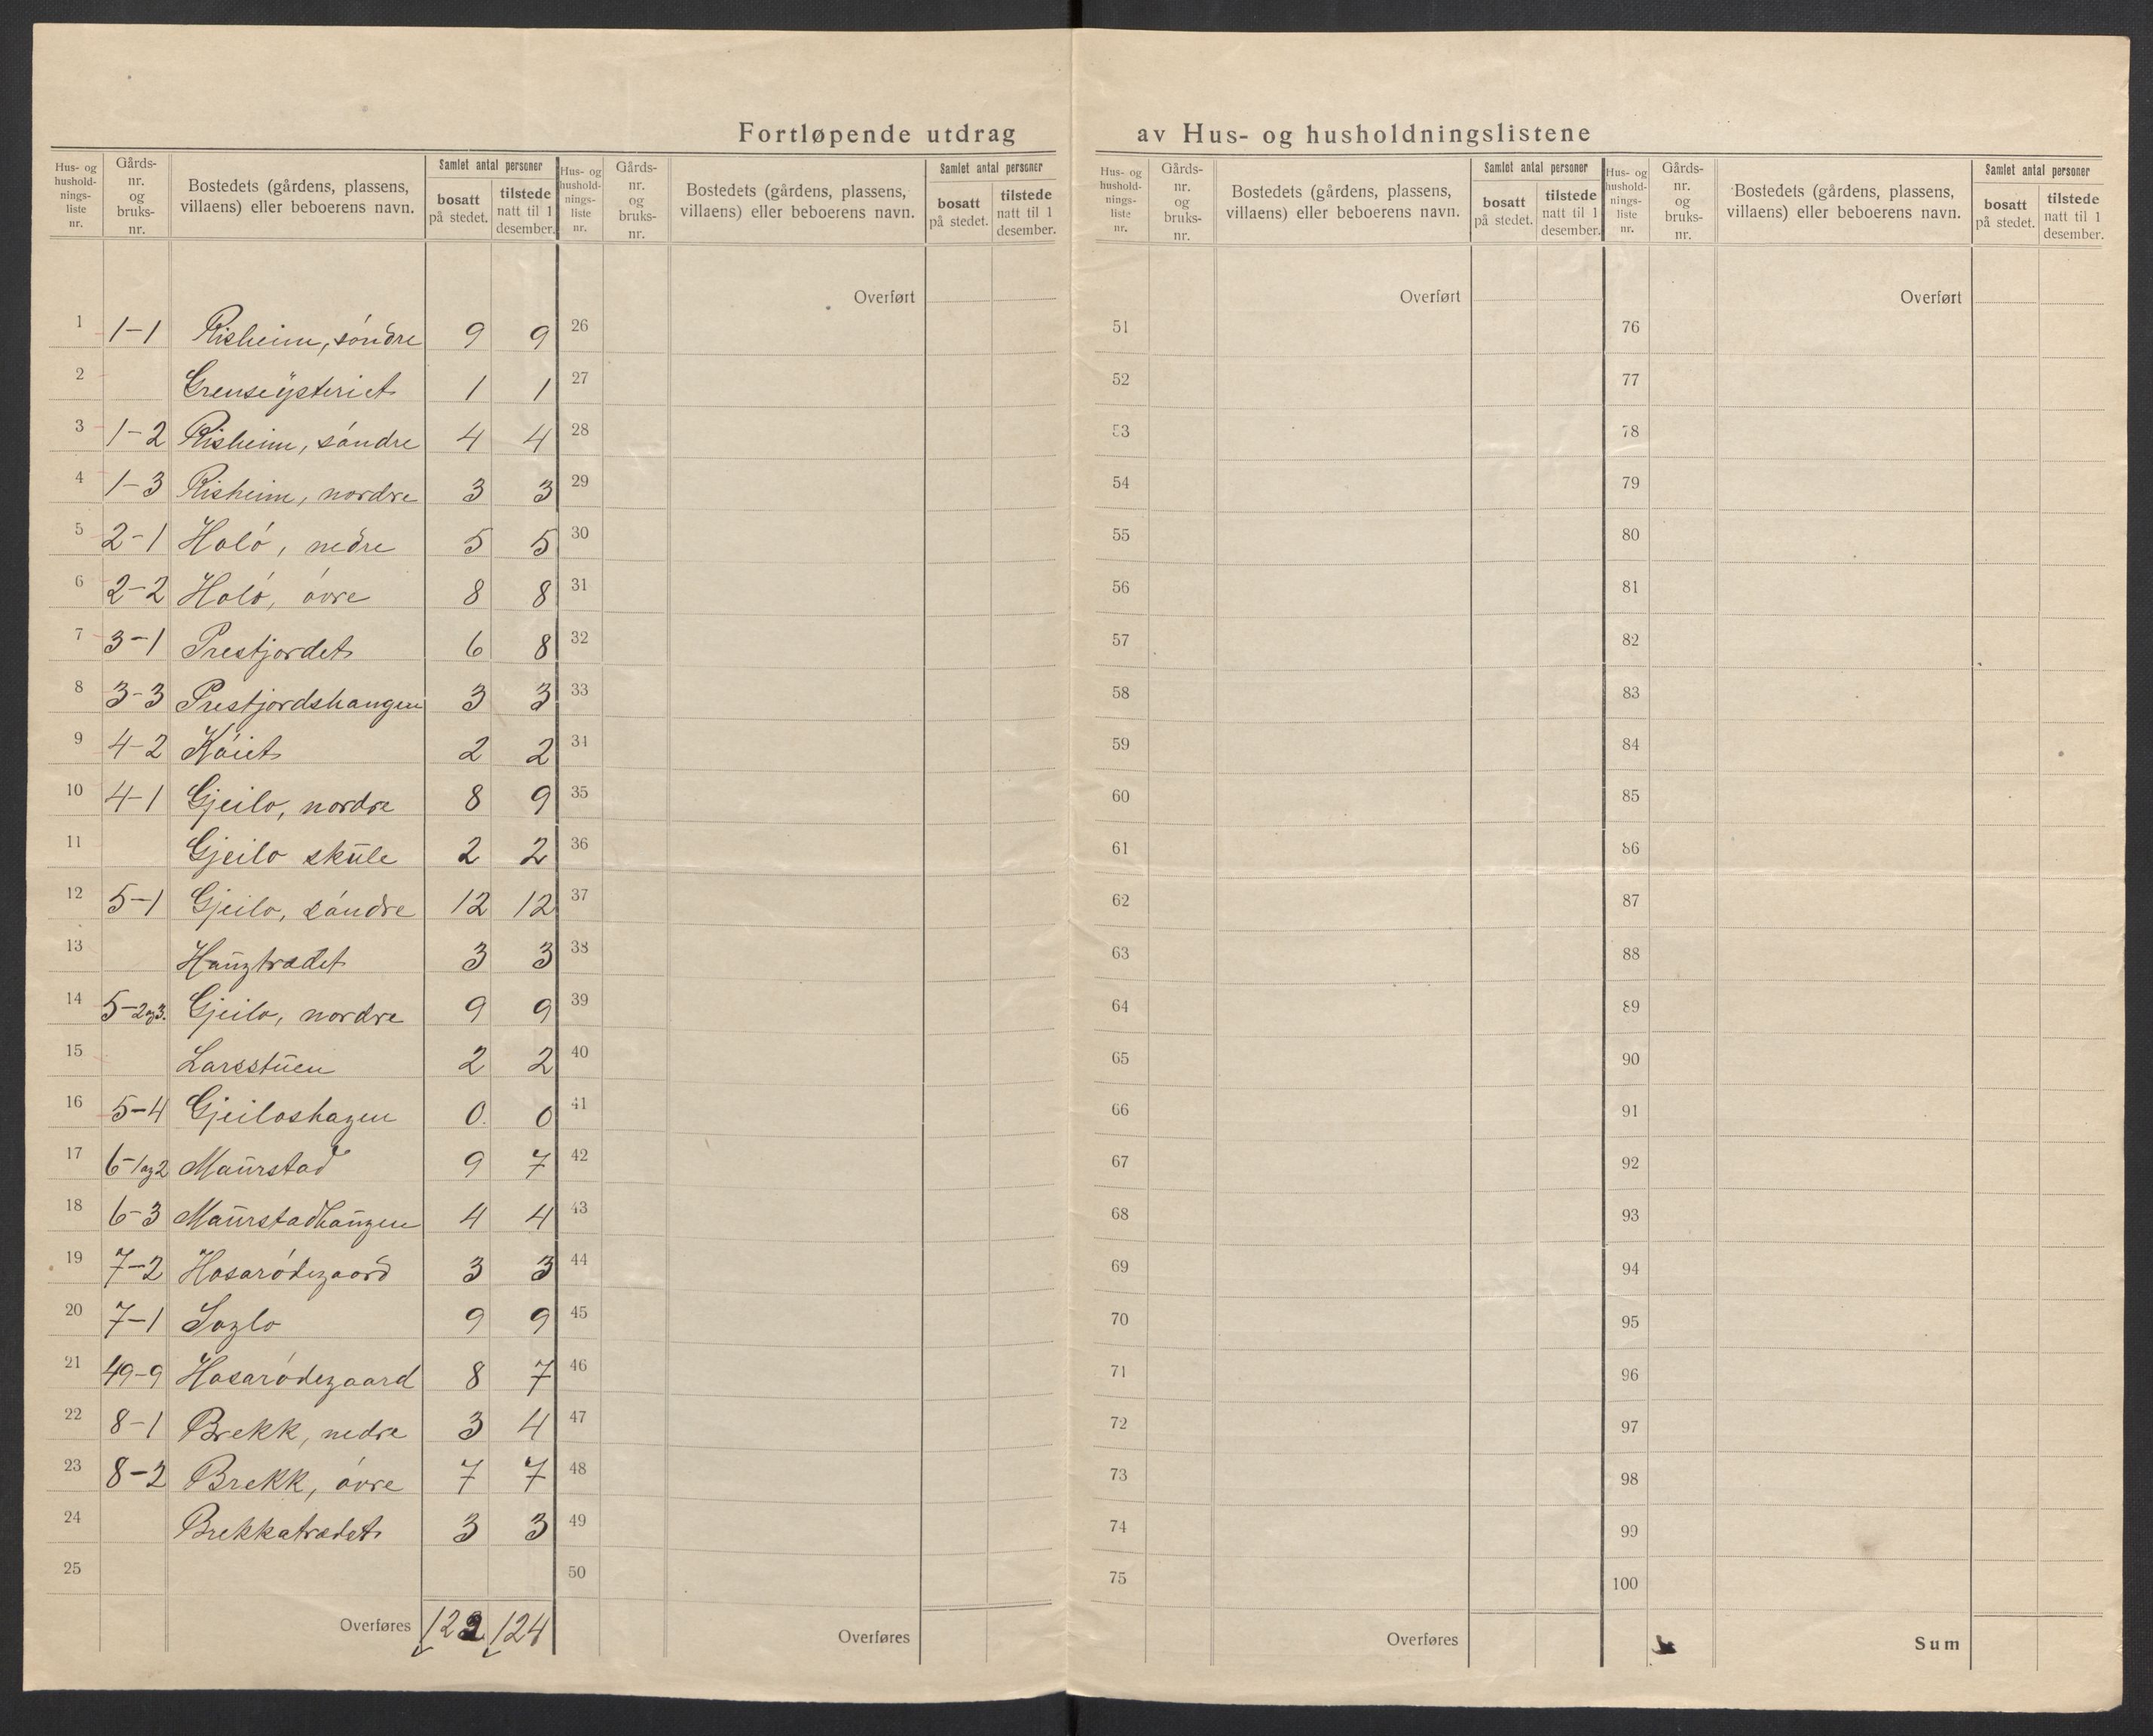 Fortløpende utdrag av Hus- og husholdningslistene
Hus- og hushold-nings-liste nr. Gårds-nr. og bruks-nr. Bostedets (gårdens, plassens, villaens) eller beboerens navn. Samlet antal personer bosatt på stedet. tilstede natt til 1 desember.
Hus- og hushold-nings-liste nr. Gårds-nr. og bruks-nr. Bostedets (gårdens, plassens, villaens) eller beboerens navn. Samlet antal personer bosatt på stedet. tilstede natt til 1 desember.
Hus- og hushold-nings-liste nr. Gårds-nr. og bruks-nr. Bostedets (gårdens, plassens, villaens) eller beboerens navn. Samlet antal personer bosatt på stedet. tilstede natt til 1 desember.
Hus- og hushold-nings-liste nr. Gårds-nr. og bruks-nr. Bostedets (gårdens, plassens, villaens) eller beboerens navn. Samlet antal personer bosatt på stedet. tilstede natt til 1 desember.
Overført Overført Overført
1 1-1 Risheim, söndre 9 9 26 51 76
2 Grenseysteriet 1 1 27 52 77
3 1-2 Risheim, söndre 4 4 28 53 78
4 1-3 Risheim, nordre 3 3 29 54 79
5 2-1 Holö, nedre 5 5 30 55 80
6 2-2 Holö, övre 8 8 31 56 81
7 3-1 Prestjordet 6 8 32 57 82
8 3-3 Prestjordshaugen 3 3 33 58 83
9 4-2 Köiet 2 2 34 59 84
10 4-1 Gjeilo, nordre 8 9 35 60 85
11 Gjeilo skule 2 2 36 61 86
12 5-1 Gjeilo, söndre 12 12 37 62 87
13 Haugtrædet 3 3 38 63 88
14 5-2og3. Gjeilo, nordre 9 9 39 64 89
15 Larsstuen 2 2 40 65 90
16 5-4 Gjeiloshagen 0. 0 41 66 91
17 6-1og2 Maurstad 9 7 42 67 92
18 6-3 Maurstadhaugen 4 4 43 68 93
19 7-2 Hosarödegaard 3 3 44 69 94
20 7-1 Loglo 9 9 45 70 95
21 49-9 Hosarödegaard 8 7 46 71 96
22 8-1 Brekk, nedre 3 4 47 72 97
23 8-2 Brekk, övre 7 7 48 73 98
24 Brekkatrædet 3 3 49 74 99
25 50 75 100
Overføres 122 124 Overføres Overføres Sum